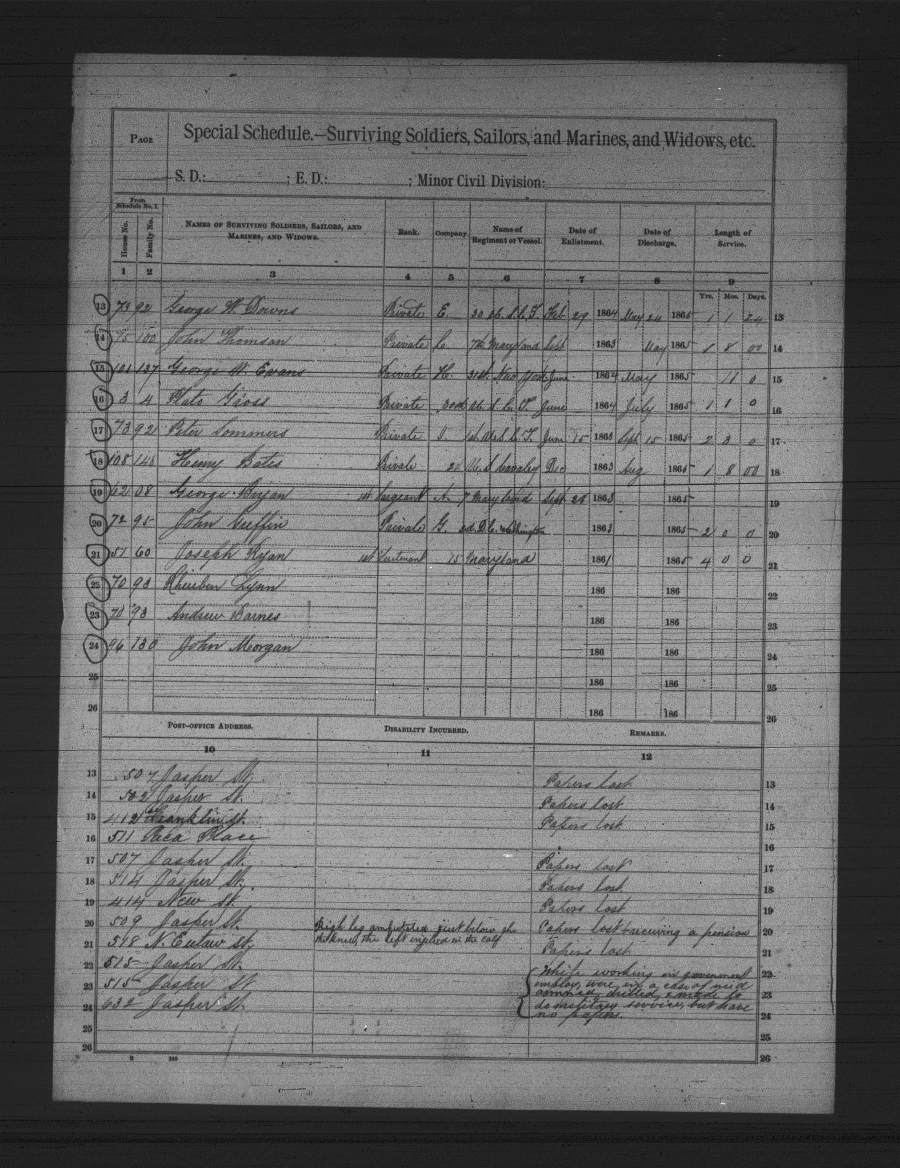 PAGE
Special Schedule.—Surviving Soldiers, Sailors, and Marines, and Widows, etc.
S. D.: ; E. D.: ; Minor Civil Division:
From Schedule No. 1.
House No. Family No. NAMES OF SURVIVING SOLDIERS, SAILORS, AND MARINES, AND WIDOWS. Rank. Company. Name of Regiment or Vessel. Date of Enlistment. Date of Discharge. Length of Service.
1 2 3 4 5 6 7 8 9
Yrs. Mos. Days.
13 73 92 George W. Downs Private E. 30 Feb 29 1864 May 24 1865 1 1 24 13
14 75 100 John Thomson Private C. 7th Maryland Sept 1863 May 1865 1 8 00 14
15 101 137 George W. Evans Private H. 31st New York June 1864 May 1865 11 0 15
16 3 4 Plato Gross Private 30th June 1864 July 1865 1 1 0 16
17 73 92 Peter Sommers Private 1st June 15 1863 Sept 15 1865 2 3 0 17
18 108 145 Henry Bates Private 2d U. S. cavalry Dec 1863 Aug 1865 1 8 00 18
19 62 08 George Bryan 1st Sergeant A. 7 Maryland Sept 28 1863 1865 19
20 72 95 John Griffin Private G. 2d D. C. Washington 1863 1865 2 0 0 20
21 51 60 Joseph Ryan 1st Lieutenant 15 Maryland 1861 1865 4 0 0 21
22 70 93 Rheuben Lynn 186 186 22
23 70 93 Andrew Barnes 186 186 23
24 96 130 John Morgan 186 186 24
25 186 186 25
26 186 186 26
POST-OFFICE ADDRESS. DISABILITY INCURRED. REMARKS.
10 11 12
13 507 Jasper St. Papers lost 13
14 502 Jasper St. Papers lost 14
15 412 Franklin St. Papers lost 15
16 511 Paca Place 16
17 507 Jasper St. Papers lost 17
18 514 Jasper St. Papers lost 18
19 414 New St. Papers lost 19
20 509 Jasper St. Right leg amputated just below the Papers lost but receiving a pension 20
21 518 N. Eutaw St. the left injured in the calf Papers lost 21
22 515 Jasper St. While working in government 22
23 515 Jasper St employ, were, in a case of need 23
24 632 Jasper St. drilled & made to
do military service, but have 24
no papers.
25 25
26 26